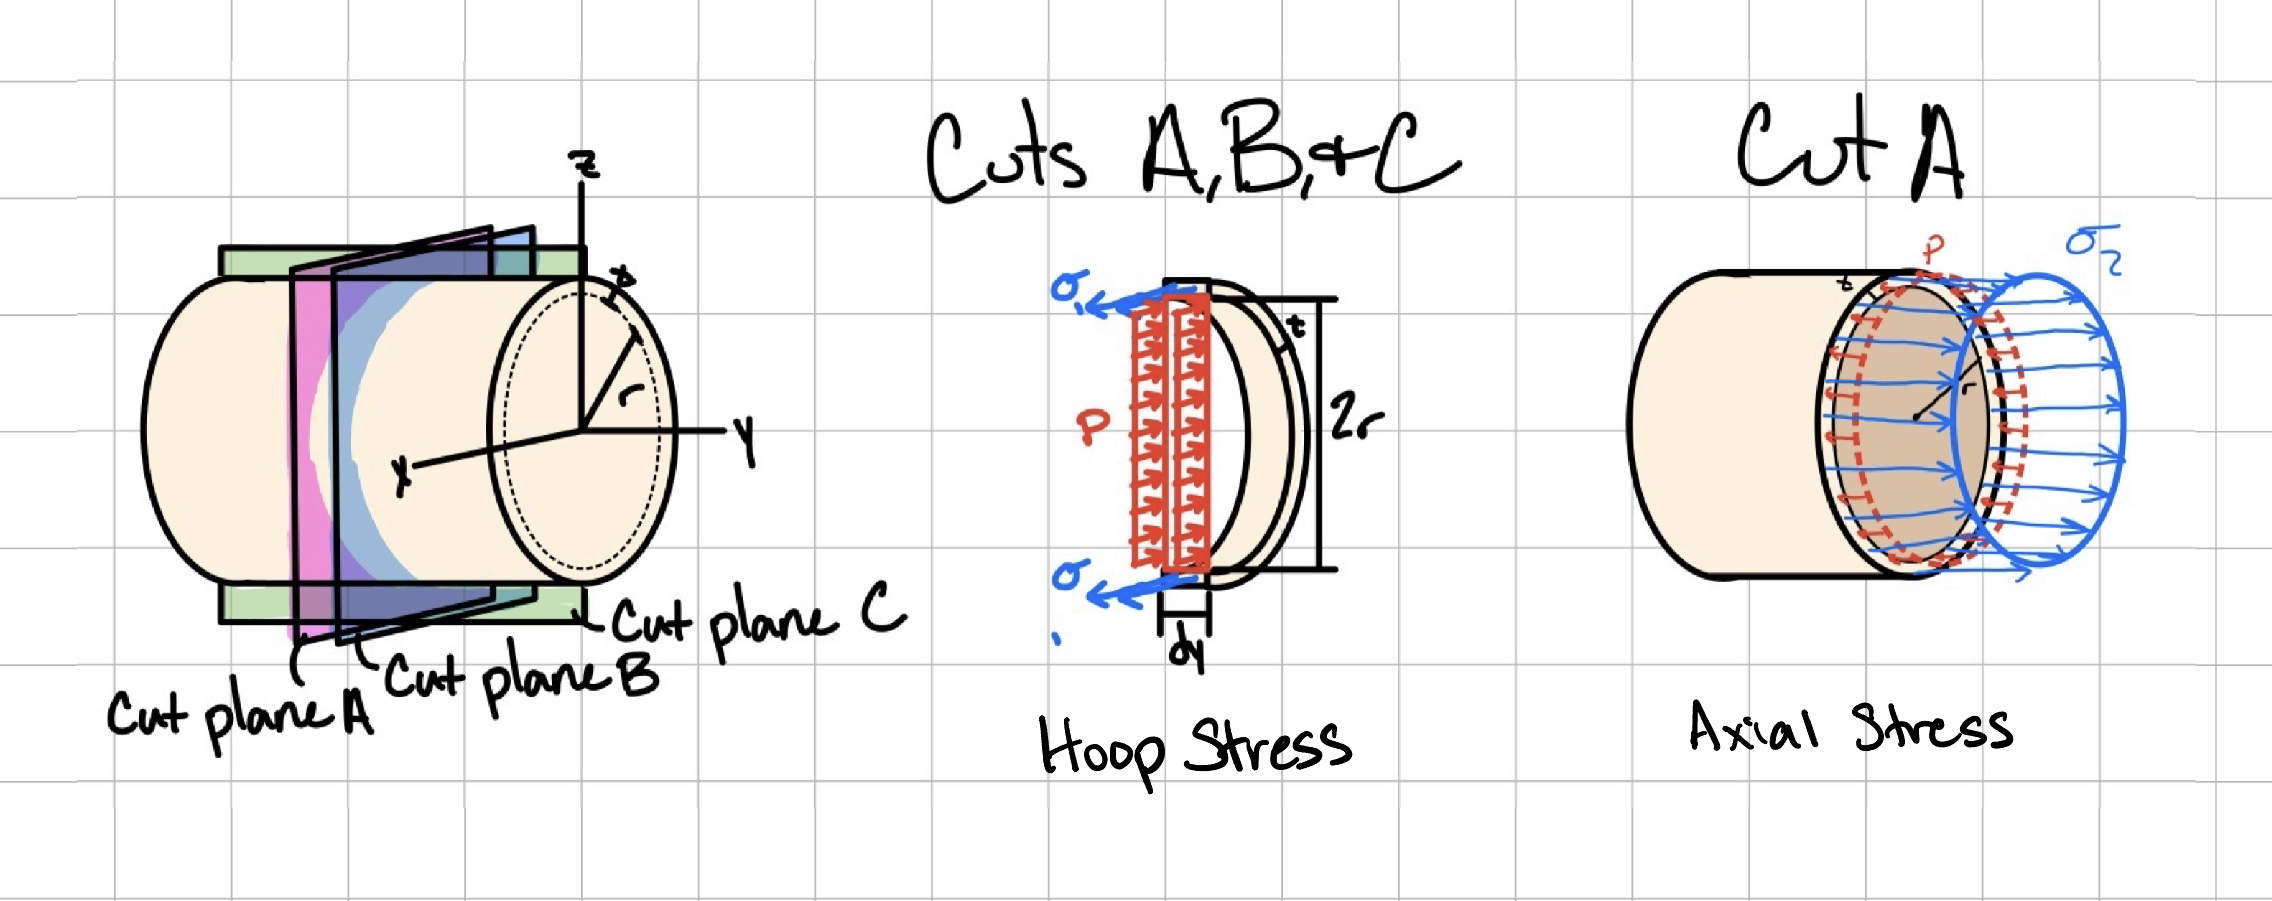 z
t
r
y
x
Cut plane C
Cut plane B
Cut plane A
Cuts A, B, & C
σ₁
P
t
2r
σ
dy
Hoop Stress
Cut A
P
σ₂
t
r
Axial Stress